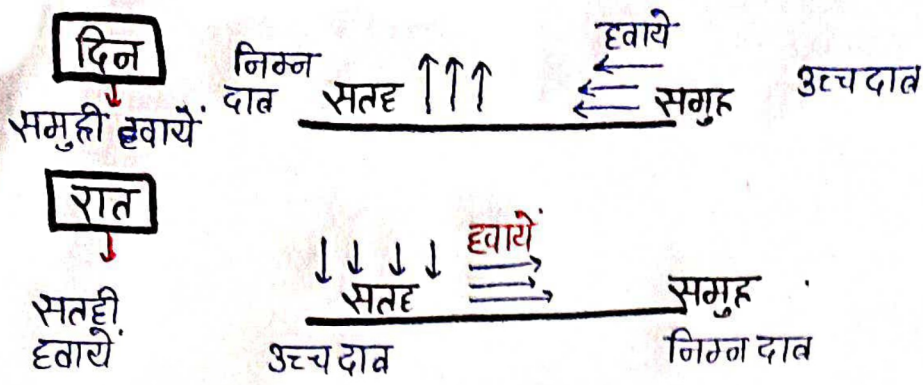 दिन
समुद्री हवायें
निम्न
दाब
सतह
हवाये
समुद्र
उच्च दाब
रात
सतही
हवायें
सतह
हवायें
समुद्र
उच्च दाब
निम्न दाब